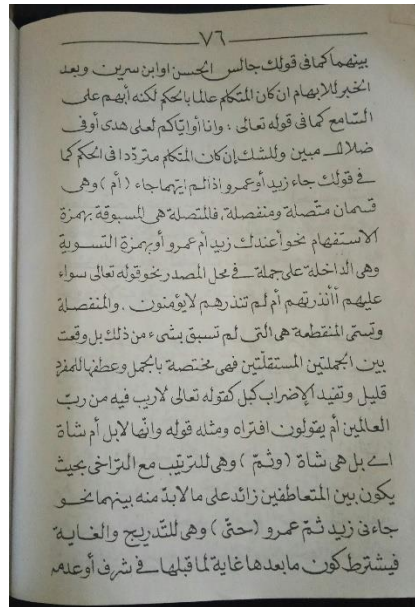 ٧٦
بينهما كما فى قولك جالس الحسن اوابن سرين وبعد
الخبر للابهام ان كان المتكلم عالما بالحكم لكنه أبهم على
السامع كما فى قوله تعالى : وانا أوايّاكم لعلى هدى أوفى
ضلال مبين وللشك إن كان المتكلم مترددا فى الحكم كما
فى قولك جاء زيد أو عمرو اذا لم ايّهما جاء (أم) وهى
قسمان متّصلة ومنفصلة، فالمتصلة هى المسبوقة بهمزة
الاستفهام نحو أعندك زيد أم عمرو أوبهمزة التسوية
وهى الداخلة على جملة فى محل المصدر نحو قوله تعالى سواء
عليهم أأنذرتهم أم لم تنذرهم لايؤمنون . والمنفصلة
وتسمّى المنقطعة هى التى لم تسبق بشىء من ذلك بل وقعت
بين الجملتين المستقلّتين فهى مختصة بالجمل وعطفها للمفرد
قليل وتفيد الإضراب كبل كقوله تعالى لاريب فيه من ربّ
العالمين أم يقولون افتراه ومثله قوله وانّها لابل أم شاة
اى بل هى شاة (وثمّ) وهى للترتيب مع التراخى بحيث
يكون بين المتعاطفين زائد على مالابدّ منه بينهما نحو
جاءنى زيد ثمّ عمرو (حتّى) وهى للتّدريج والغاية
فيشترط كون مابعدها غاية لما قبلها فى شرف أو عدمه